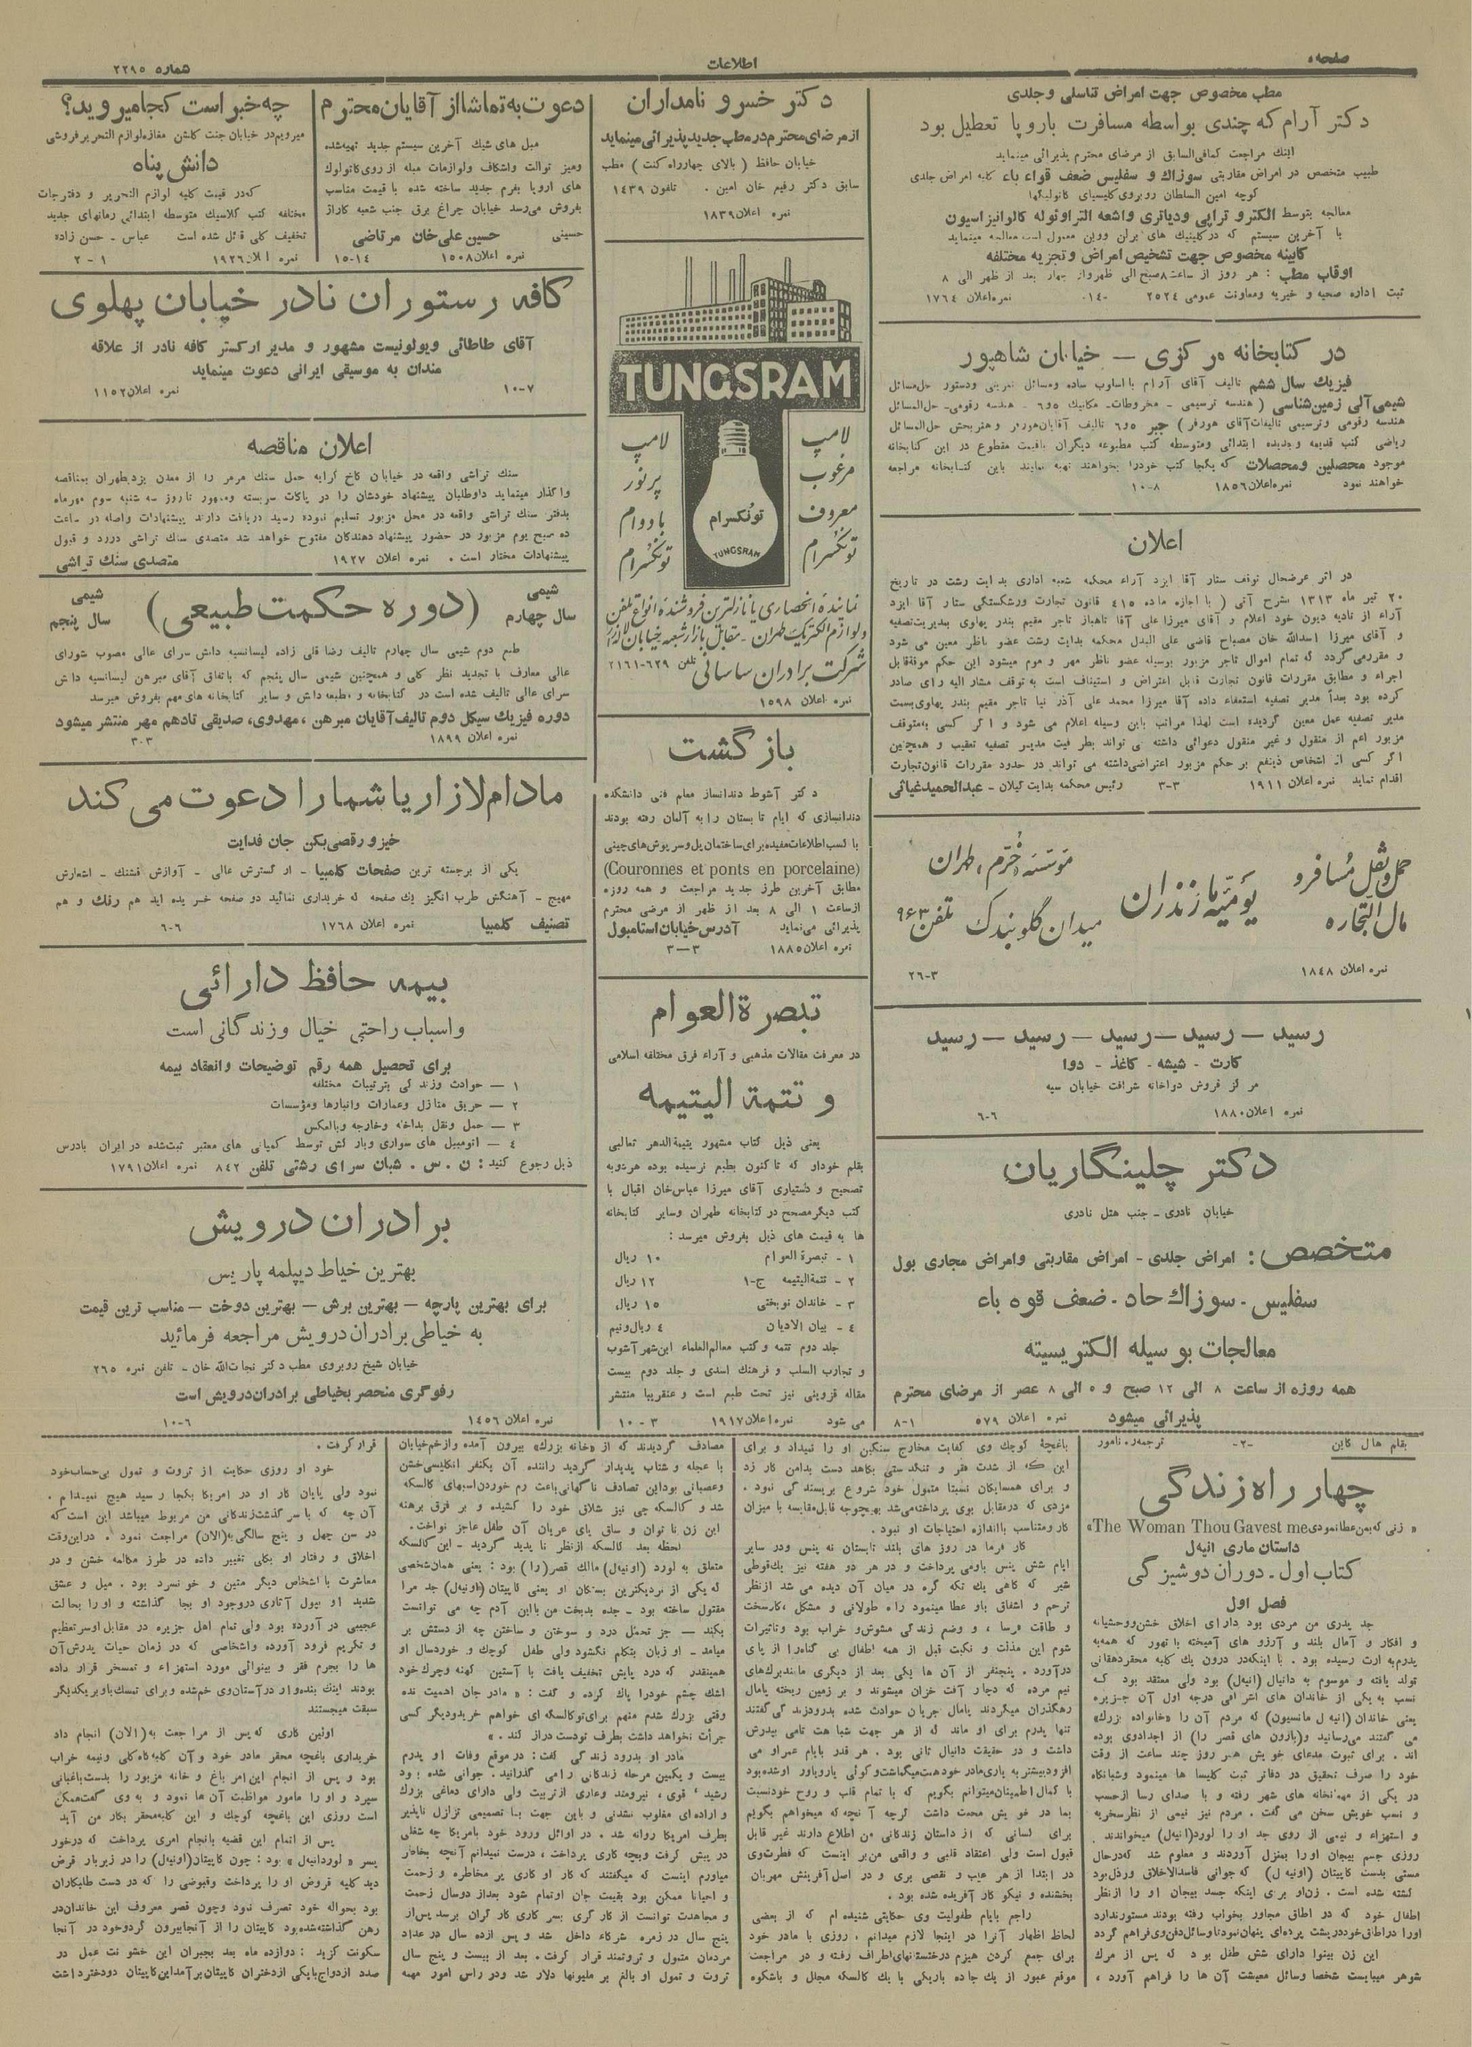 صفحه ۵
اطلاعات
شماره ۲۲۹۵
مطب مخصوص جهت امراض تناسلی و جلدی
دکتر آرام که چندی بواسطه مسافرت باروپا تعطیل بود
اینك مراجعت کمافی‌السابق از مرضای محترم پذیرائی مینماید
طبیب متخصص در امراض مقاربتی سوزاك و سفلیس ضعف قواء باء کلیه امراض جلدی
کوچه امین السلطان روبروی کلیسیای کاتولیکها
معالجه بتوسط الکترو تراپی ودیاتری واشعه التراوئوله کالوانیزاسیون
با آخرین سیستم که در کلینیك های برلن ووین معمول است معالجه مینماید
کابینه مخصوص جهت تشخیص امراض وتجزیه مختلفه
اوقات مطب : هر روز از ساعت ۸ صبح الی ظهر واز چهار بعد از ظهر الی ۸
ثبت اداره صحیه و خیریه ومعاونت عمومی ۲۵۲۴ نمره اعلان ۱۷۶۴
در کتابخانه مرکزی – خیابان شاهپور
فیزیك سال ششم تالیف آقای آرام با اسلوب ساده ومسائل تمرینی ودستور حل‌مسائل
شیمی آلی زمین‌شناسی ( هندسه ترسیمی - مخروطات- مکانیك ۵و۶ - هندسه رقومی- حل‌المسائل
هندسه رقومی وترسیمی تالیفات آقای هورفر ) جبر ۵و۶ تالیف آقایان هورفر و هنربخش حل‌المسائل
ریاضی کتب قدیمه وجدیده ابتدائی ومتوسطه کتب مطبوعه دیگران باقیمت مقطوع در این کتابخانه
موجود محصلین ومحصلات که یکجا کتب خودرا بخواهند تهیه نمایند باین کتابخانه مراجعه
خواهند نمود نمره اعلان ۱۸۵۶ ۸-۱۰
اعلان
در اثر عرضحال توقف ستار آقا ایزد آراء محکمه شعبه اداری بدایت رشت در تاریخ
۲۰ تیر ماه ۱۳۱۳ بشرح آتی ( با اجازه ماده ۴۱۵ قانون تجارت ورشکستگی ستار آقا ایزد
آراء از تادیه دیون خود اعلام و آقای میرزا علی آقا تاهباز تاجر مقیم بندر پهلوی بمدیریت‌تصفیه
و آقای میرزا اسدالله خان مصباح قاضی علی البدل محکمه بدایت رشت عضو ناظر معین می شود
و مقررمی گردد که تمام اموال تاجر مزبور بوسیله عضو ناظر مهر و موم میشود این حکم موقةقابل
اجراء و مطابق مقررات قانون تجارت قابل اعتراض و استیناف است به توقف مشار الیه رای صادر
کرده بود بعداً مدیر تصفیه استعفاء داده آقا میرزا محمد علی آذر نیا تاجر مقیم بندر پهلوی بسمت
مدیر تصفیه عمل معین گردیده است لهذا مراتب باین وسیله اعلام می شود و اگر کسی به‌متوقف
مزبور اعم از منقول و غیر منقول دعوائی داشته می تواند بطرفیت مدیر تصفیه تعقیب و همچنین
اگر کسی از اشخاص ذینفع بر حکم مزبور اعتراضی‌داشته می تواند در حدود مقررات قانون‌تجارت
اقدام نماید نمره اعلان ۱۹۱۱ ۳-۳ رئیس محکمه بدایت گیلان - عبدالحمیدغیاثی
حمل و نقل مسافر و
مال التجاره
یومیه مازندران
موسسه محترم، طهران
میدان گلوبندك تلفن ۹۶۳
نمره اعلان ۱۸۴۸ ۳-۲۶
رسید – رسید – رسید – رسید – رسید
کارت - شیشه - کاغذ - دوا
مرکز فروش دواخانه شرافت خیابان سپه
نمره اعلان ۱۸۸۰ ۶-۶
دکتر چلینگاریان
خیابان نادری - جنب هتل نادری
متخصص : امراض جلدی - امراض مقاربتی وامراض مجاری بول
سفلیس - سوزاك حاد - ضعف قوه باء
معالجات بوسیله الکتریسیته
همه روزه از ساعت ۸ الی ۱۲ صبح و ۵ الی ۸ عصر از مرضای محترم
پذیرائی میشود نمره اعلان ۵۷۹ ۱-۸
دکتر خسرو نامداران
از مرضای محترم در مطب جدید پذیرائی مینماید
خیابان حافظ ( بالای چهارراه کنت ) مطب
سابق دکتر رفیع خان امین . تلفون ۱۴۳۹
نمره اعلان ۱۸۳۹
TUNGSRAM
لامپ
مرغوب
معروف
تونگسرام
لامپ
پرنور
بادوام
تونگسرام
تونگسرام
TUNGSRAM
نماینده انحصاری با نازلترین فروشنده انواع تلفن
ولوازم الکتریك طهران - مقابل بازار شعبه خیابان لاله‌زار
شرکت برادران ساسانی تلفن ۶۲۹-۲۱۶۱
نمره اعلان ۱۵۹۸
بازگشت
دکتر آشوط دندانساز معلم فنی دانشکده
دندانسازی که ایام تابستان را به آلمان رفته بودند
با کسب اطلاعات مفیده برای ساختمان پل و سرپوش‌های چینی
(Couronnes et ponts en porcelaine)
مطابق آخرین طرز جدید مراجعت و همه روزه
ازساعت ۱ الی ۸ بعد از ظهر از مرضی محترم
پذیرائی می‌نماید آدرس خیابان استامبول
نمره اعلان ۱۸۸۵ ۳–۳
تبصرة العوام
در معرفت مقالات مذهبی و آراء فرق مختلفه اسلامی
و تتمة الیتیمه
یعنی ذیل کتاب مشهور یتیمةالدهر ثعالبی
بقلم خوداو که تاکنون بطبع نرسیده بوده هردوبه
تصحیح و دستیاری آقای میرزا عباس‌خان اقبال با
کتب دیگر مصحح در کتابخانه طهران وسایر کتابخانه
ها به قیمت های ذیل بفروش میرسد :
۱ - تبصرة العوام ۱۰ ریال
۲ - تتمةالیتیمه ج-۱ ۱۲ ریال
۳ - خاندان نوبختی ۱۵ ریال
۴ - بیان الادیان ۴ ریال‌ونیم
جلد دوم تتمه و کتب معالم‌العلماء ابن‌شهر آشوب
و تجارب السلف و فرهنك اسدی و جلد دوم بیست
مقاله قزوینی نیز تحت طبع است و عنقریبا منتشر
می شود نمره اعلان ۱۹۱۷ ۳ - ۱۰
دعوت به تماشا از آقایان محترم
مبل های شیك آخرین سیستم جدید تهیه‌شده
ومیز توالت واشکاف ولوازمات مبله از روی کاتولوك
های اروپا بفرم جدید ساخته شده با قیمت مناسب
بفروش می‌رسد خیابان چراغ برق جنب شعبه کاراژ
حسینی حسین علی‌خان مرتاضی
نمره اعلان ۱۵۰۸ ۱۴-۱۵
چه خبر است کجا میروید؟
میرویم در خیابان جنت گلشن مغازه‌لوازم التحریر فروشی
دانش پناه
که‌در قیمت کلیه لوازم التحریر و دفترجات
مختلفه کتب کلاسیك متوسطه ابتدائی رمانهای جدید
تخفیف کلی قائل شده است عباس - حسن زاده
نمره اعلان ۱۹۲۶ ۱-۲
کافه رستوران نادر خیابان پهلوی
آقای طاطائی ویولونیست مشهور و مدیر ارکستر کافه نادر از علاقه
مندان به موسیقی ایرانی دعوت مینماید
نمره اعلان ۱۱۵۲ ۷-۱۰
اعلان مناقصه
سنك تراشی واقعه در خیابان کاخ کرایه حمل سنك مرمر را از معدن یزدبطهران بمناقصه
واگذار مینماید داوطلبان پیشنهاد خودشان را در پاکات سربسته وممهور تاروز سه شنبه سوم مهرماه
بدفتر سنك تراشی واقعه در محل مزبور تسلیم نموده رسید دریافت دارند پیشنهادات واصله در ساعت
ده صبح یوم مزبور در حضور پیشنهاد دهندگان مفتوح خواهد شد متصدی سنك تراشی دررد و قبول
پیشنهادات مختار است . نمره اعلان ۱۹۲۷ متصدی سنك تراشی
شیمی
سال چهارم
(دوره حکمت طبیعی)
شیمی
سال پنجم
طبع دوم شیمی سال چهارم تالیف رضا قلی زاده لیسانسیه دانش سرای عالی مصوب شورای
عالی معارف با تجدید نظر کلی و همچنین شیمی سال پنجم که باتفاق آقای مبرهن لیسانسیه دانش
سرای عالی تالیف شده است در کتابخانه و مطبعه دانش و سایر کتابخانه های مهم بفروش میرسد
دوره فیزیك سیکل دوم تالیف آقایان مبرهن ، مهدوی، صدیقی تادهم مهر منتشر میشود
نمره اعلان ۱۸۹۹ ۳-۳
مادام لازاریا شما را دعوت می کند
خیز و رقصی بکن جان فدایت
یکی از برجسته ترین صفحات کلمبیا - ارگسترش عالی - آوازش قشنك - اشعارش
مهیج - آهنگش طرب انگیز یك صفحه که خریداری نمائید دو صفحه خریده اید هم رنك و هم
تصنیف کلمبیا نمره اعلان ۱۷۶۸ ۶-۶
بیمه حافظ دارائی
واسباب راحتی خیال وزندگانی است
برای تحصیل همه رقم توضیحات وانعقاد بیمه
۱ – حوادث وزندگی بترتیبات مختلفه
۲ – حریق منازل وعمارات وانبارها ومؤسسات
۳ – حمل ونقل بداخله وخارجه وبالعکس
۴ – اتومبیل های سواری وبارکش توسط کمپانی های معتبر ثبت‌شده در ایران بادرس
ذیل رجوع کنید : ن . س . شبان سرای رشتی تلفن ۸۴۲ نمره اعلان ۱۷۹۱
برادران درویش
بهترین خیاط دیپلمه پاریس
برای بهترین پارچه – بهترین برش – بهترین دوخت – مناسب ترین قیمت
به خیاطی برادران درویش مراجعه فرمائید
خیابان شیخ روبروی مطب دکتر نجات‌الله خان - تلفن نمره ۲۶۵
رفوگری منحصر بخیاطی برادران درویش است
نمره اعلان ۱۴۵۶ ۶-۱۰
بقلم هال کاین -۲- ترجمه‌ر. نامور
چهار راه زندگی
« زنی که بمن عطا نمودی The Woman Thou Gavest me»
داستان ماری انیه‌ل
کتاب اول - دوران دوشیزگی
فصل اول
جد پدری من مردی بود دارای اخلاق خشن ووحشیانه
و افکار و آمال بلند و آرزو های آمیخته با تهور که همه‌به
پدرم به ارث رسیده بود . با اینکه‌در درون یك کلبه محقر دهقانی
تولد یافته و موسوم به دانیال (انیه‌ل) بود ولی معتقد بود که
نسب به یکی از خاندان های اشرافی درجه اول آن جزیره
یعنی خاندان (انیه‌ل مانسیون) که مردم آن را «خانواده بزرك»
می گفتند می‌رسانید و(بارون های قصر را) از اجدادوی بوده
اند . برای ثبوت مدعای خویش هر روز چند ساعت از وقت
خود را صرف تحقیق در دفاتر ثبت کلیسا ها مینمود وشبانگاه
در یکی از مهمانخانه های شهر رفته و با صدای رسا ازحسب
و نسب خویش سخن می گفت . مردم نیز نیمی از نظرسخریه
و استهزاء و نیمی از روی جد او را لورد(انیه‌ل) میخواندند .
روزی جسم بیجان اورا بمنزل آوردند و معلوم شد که‌درحال
مستی بدست کاپیتان (اونیه ل) که جوانی فاسدالاخلاق ورذل‌بود
کشته شده است . زن‌او برای اینکه جسد بیجان او را ازنظر
اطفال خود که در اطاق مجاور بخواب رفته بودند مستورندارد
اورا در اطاق خود در پشت پرده‌ای پنهان نمود تا وسائل دفن‌وی فراهم گردد
این زن بینوا دارای شش طفل بود که پس از مرك
شوهر میبایست شخصا وسائل معیشت آن ها را فراهم آورد ،
باغچهٔ کوچك وی کفایت مخارج سنگین او را نمیداد و برای
این که از شدت فقر و تنگدستی بکاهد دست بدامن کار زد
و برای همسایگان نسبتا متمول خود شروع بریسندگی نمود .
مزدی که درمقابل بوی پرداخته‌می‌شد بهیچوجه قابل‌مقایسه با میزان
کار ومتناسب با اندازه احتیاجات او نبود .
کار فرما در روز های بلند تابستان نه پنس ودر سایر
ایام شش پنس باومی پرداخت و در هر دو هفته نیز یك‌قوطی
شیر که گاهی یك تکه کره در میان آن دیده می شد ازنظر
ترحم و اشفاق باو عطا مینمود راه طولانی و مشکل ،کارسخت
و طاقت فرسا ، و وضع زندگی مشوش‌و خراب بود وتاثیرات
شوم این مذلت و نکبت قبل از همه اطفال بی گناه‌را از پای
درآورد . پنجنفر از آن ها یکی بعد از دیگری مانندبرك‌های
نیم مرده که دچار آفت خزان میشوند و بر زمین ریخته پامال
رهگذران میگردند پامال جریان حوادث شده بدرودزندگی گفتند
تنها پدرم برای او ماند که از هر جهت شباهت تامی بپدرش
داشت و در حقیقت دانیال ثانی بود . هر قدر بایام عمر او می
افزود بیشتر به یاری مادر خود همت میگماشت و گوئی یارویاور اوشده‌بود
با کمال اطمینان میتوانم بگویم که با تمام قلب و روح خودنسبت
بما در خویش محبت داشت گرچه آنچه که میخواهم بگویم
برای کسانی که از داستان زندگانی من اطلاع دارند غیر قابل
قبول است ولی اعتقاد قلبی و واقعی من بر اینست که فطرت‌وی
در ابتدا از هر عیب و نقصی بری و در اصل آفرینش مهربان
بخشنده و نیکو کار آفریده شده بود .
راجع بایام طفولیت وی حکایتی شنیده ام که از بعضی
لحاظ اظهار آنرا در اینجا لازم میدانم . روزی با مادر خود
برای جمع کردن هیزم درختستانهای اطراف رفته و در مراجعت
موقع عبور از یك جاده باریکی با یك کالسکه مجلل و باشکوه
مصادف گردیدند که از «خانه بزرك» بیرون آمده وازخم‌خیابان
با عجله و شتاب پدیدار گردید راننده آن یکنفر انگلیسی‌خشن
وعصبانی بوداین تصادف ناگهانی‌باعث رم خوردن‌اسبهای کالسکه
شد و کالسکه چی نیز شلاق خود را کشیده و بر فرق برهنه
این زن ناتوان و ساق پای عریان آن طفل عاجز نواخت .
لحظه بعد کالسکه ازنظر ناپدید گردید - این کالسکه
متعلق به لورد (اونیه‌ل) مالك قصر(را) بود : یعنی همان‌شخصی
که‌یکی از نزدیکترین بستگان او یعنی کاپیتان (اونیه‌ل) جد مرا
مقتول ساخته بود - جده بدبخت من باین آدم چه می توانست
بکند – جز تحمل درد و سوختن و ساختن چه از دستش بر
میامد - او زبان بتکلم نگشود ولی طفل کوچك و خوردسال او
همینقدر که درد پایش تخفیف یافت با آستین کهنه وچرك خود
اشك چشم خودرا پاك کرده و گفت : « مادر جان اهمیت نده
وقتی بزرك شدم منهم برای‌توکالسکه ای خواهم خریدودیگر کسی
جرأت نخواهد داشت بطرف تودست دراز کند . »
مادر او بدرود زندگی گفت : درموقع وفات او پدرم
بیست و یکمین مرحله زندگانی رامی گذرانید . جوانی شده بود
رشید ، قوی ، نیرومند وعاری ازتربیت ولی دارای دماغی بزرك
و اراده‌ای مغلوب نشدنی و باین جهت با تصمیمی تزلزل ناپذیر
بطرف امریکا روانه شد . در اوائل ورود خود بامریکا چه شغلی
در پیش گرفت وبچه کاری پرداخت ، درست نمیدانم آنچه بخاطر
میاورم اینست که میگفتند که کار او کاری پر مخاطره و زحمت
و احیانا ممکن بود بقیمت جان اوتمام شود بعداز دوسال زحمت
و مجاهدت توانست از کارگری بسر کاری کارگران برسد پس‌از
پنج سال در زمره شرکاء داخل شد و پس ازده سال در عداد
مردمان متمول و ثروتمند قرار گرفت . بعد از بیست و پنج سال
ثروت و تمول او بالغ بر ملیونها دلار شد ودر راس امور مهمه
قرار گرفت .
خود او روزی حکایت از ثروت و تمول بی‌حساب‌خود
نمود ولی پایان کار او در امریکا بکجا رسید هیچ نمیدانم .
آن چه که با سرگذشت زندگانی من مربوط میباشد این است‌که
در سن چهل و پنج سالگی به(الان) مراجعت نمود . دراین‌وقت
اخلاق و رفتار او بکلی تغییر داده در طرز مکالمه خشن و در
معاشرت با اشخاص دیگر متین و خونسرد بود . میل و عشق
شدید او بپول آثاری دروجود او بجا گذاشته و او را بحالت
عجیبی در آورده بود ولی تمام اهل جزیره در مقابل اوسر تعظیم
و تکریم فرود آورده واشخاصی که در زمان حیات پدرش‌آن
ها را بجرم فقر و بینوائی مورد استهزاء و تمسخر قرار داده
بودند اینك بنده‌وار در آستان‌وی خم‌شده و برای تمسك باو بریکدیگر
سبقت میجستند
اولین کاری که‌پس از مراجعت به(الان) انجام داد
خریداری باغچه محقر مادر خود و آن کلبه کاه‌گلی ونیمه خراب
بود و پس از انجام این‌امر باغ و خانه مزبور را بدست‌باغبانی
سپرد و او را مامور مواظبت آن ها نمود و به وی گفت‌ممکن
است روزی این باغچه کوچك و این کلبه‌محقر بکار من آید
پس از اتمام این قضیه بانجام امری پرداخت که‌درخور
پسر «لوردانیه‌ل» بود : چون کاپیتان(اونیه‌ل) را در زیربار قرض
دید کلیه قروض او را پرداخت وقبوضی را که در دست طلبکاران
بود بحواله خود تصرف نمود وچون قصر معروف این خاندان‌در
رهن گذاشته‌شده‌بود کاپیتان را از آنجابیرون کردوخود در آنجا
سکونت گزید : دوازده ماه بعد بجبران این خشونت عمل در
صدد ازدواج‌بایکی ازدختران کاپیتان برآمداین‌کاپیتان دودخترداشت